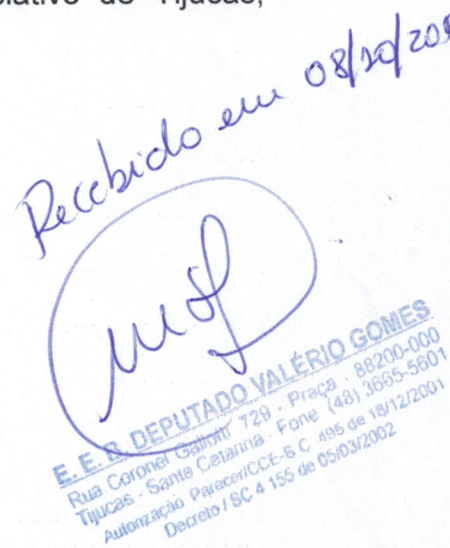 de Tijucas,
Recebido em 08/10/20
E. E. B. DEPUTADO VALÉRIO GOMES
Rua Coronel Gallotti 729 - Praça - 88200-000
Tijucas - Santa Catarina - Fone (48) 3665-5601
Autorização Parecer/CCE-S C 495 de 18/12/2001
Decreto / SC 4 155 de 05/03/2002